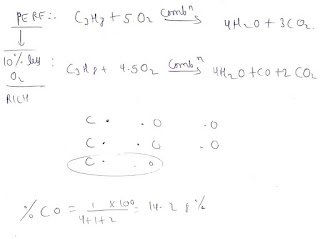 PERF:. C3H8 + 5.O2 Combⁿ→ 4H2O + 3CO2.
↓
10% less O2 : C3H8 + 4.5O2 Combⁿ→ 4H2O + CO + 2CO2
RICH
C . . O . O
C . . O . O
C . . O
% CO = 1 × 100 / 4+1+2 = 14.28 %